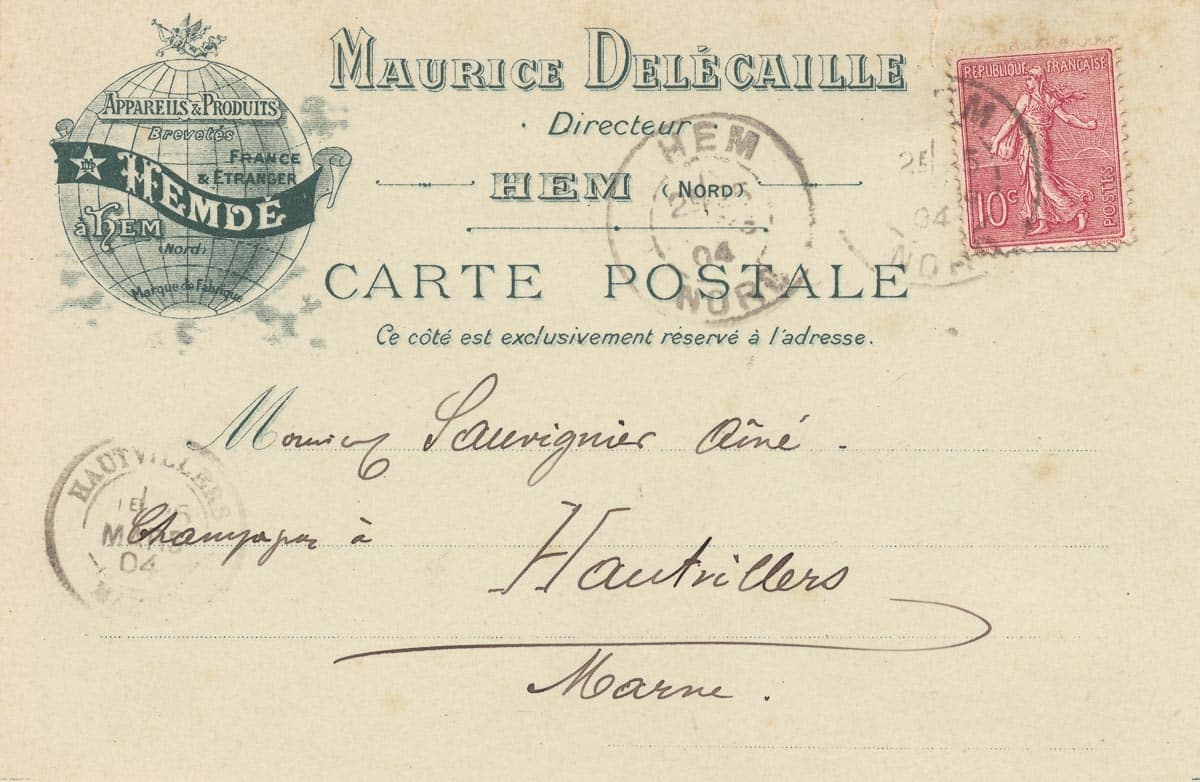 MAURICE DELÉCAILLE
Directeur
HEM (NORD)
CARTE POSTALE
Ce côté est exclusivement réservé à l'adresse.
APPAREILS & PRODUITS
Brevetés
FRANCE
& ETRANGER
HEMDÉ
à HEM
(Nord)
Marque de Fabrique
REPUBLIQUE FRANÇAISE
10c
POSTES
HEM
04
NORD
25
04
NOR
Monsieur Sauvignier Aîné.
Champagne à
Hautvillers
Marne.
HAUTVILLERS
MARS
04